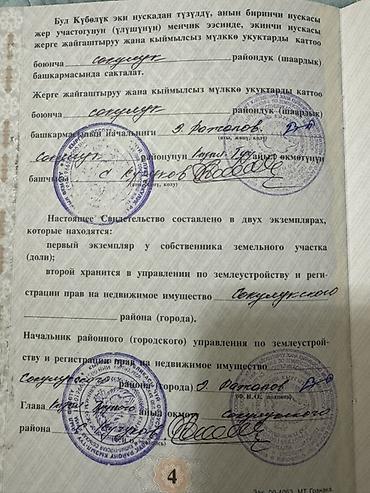 Бул Күбөлүк эки нускадан түзүлдү, анын биринчи нускасы
жер участогунун (үлүшүнүн) менчик ээсинде, экинчи нускасы
жерге жайгаштыруу жана кыймылсыз мүлккө укуктарды каттоо
боюнча сокулук райондук (шаардык)
башкармасында сакталат.
Жерге жайгаштыруу жана кыймылсыз мүлккө укуктарды каттоо
боюнча сокулук райондук (шаардык)
башкармасынын начальниги
(аты, жөнү, колу)
Сокулук районунун айыл өкмөтүнүн
башчысы
(аты, жөнү, колу)
Настоящее Свидетельство составлено в двух экземплярах,
которые находятся:
первый экземпляр у собственника земельного участка
(доли);
второй хранится в управлении по землеустройству и реги-
страции прав на недвижимое имущество Сокулукского
района (города).
Начальник районного (городского) управления по землеустрой-
ству и регистрации прав на недвижимое имущество
Сокулукского района (города)
(Ф.И.О., подпись)
Глава айыл окмоту Сокулукского
района
4